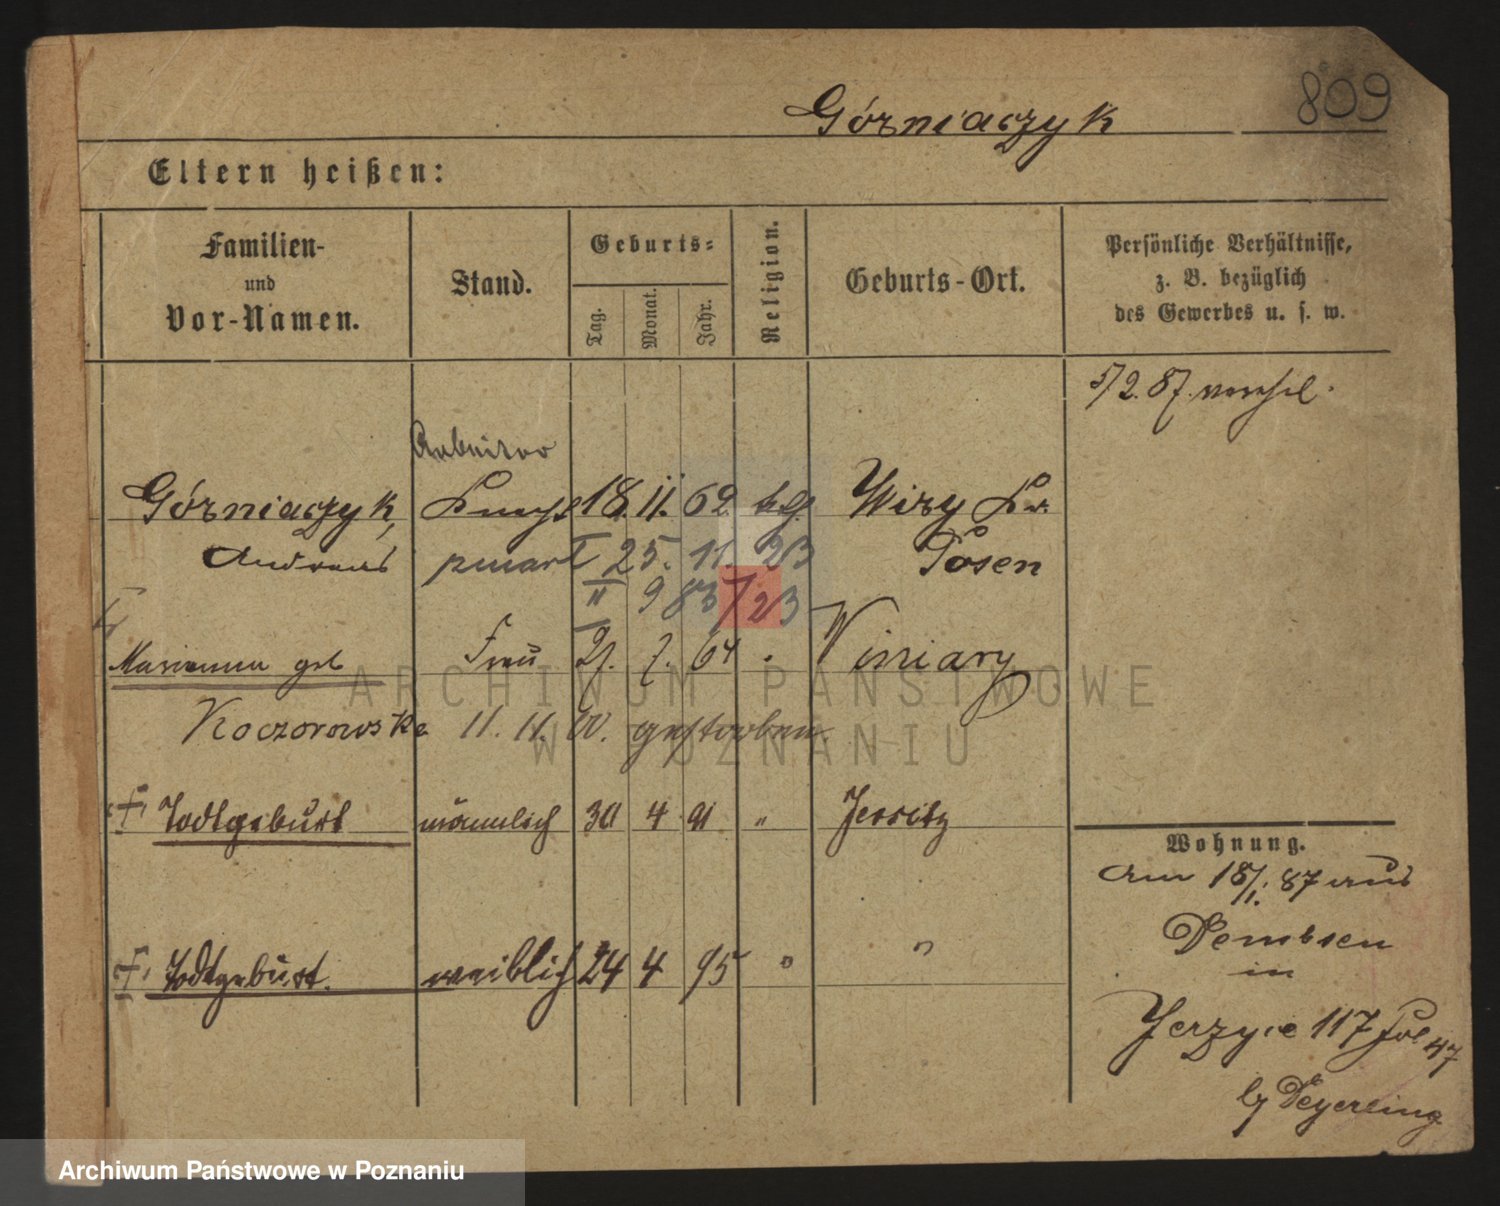 Górniaczyk 809
Eltern heißen:
Familien-
und
Vor-Namen.
Stand.
Geburts-
Tag.
Monat.
Jahr.
Religion.
Geburts-Ort.
Persönliche Verhältnisse,
z. B. bezüglich
des Gewerbes u. s. w.
5/2. 87.
Arbeiter
Górniaczyk, Knecht 18. 11. 62. ktl. Wiry Kr.
Andreas 25. 11. 23 Posen
II 9 83 723
Marianna geb Frau 27. 7. 64 " Winiary
Koczorowska 11. 11. 00. gestorben.
Todtgeburt männlich 30 4 91 " Jersitz
Todtgeburt. weiblich 24 4 95 " "
Wohnung.
am 18/1. 87 aus
Dembsen
in
Jerzyce 117
by Deyerling
ARCHIWUM PAŃSTWOWE
W POZNANIU
Archiwum Państwowe w Poznaniu